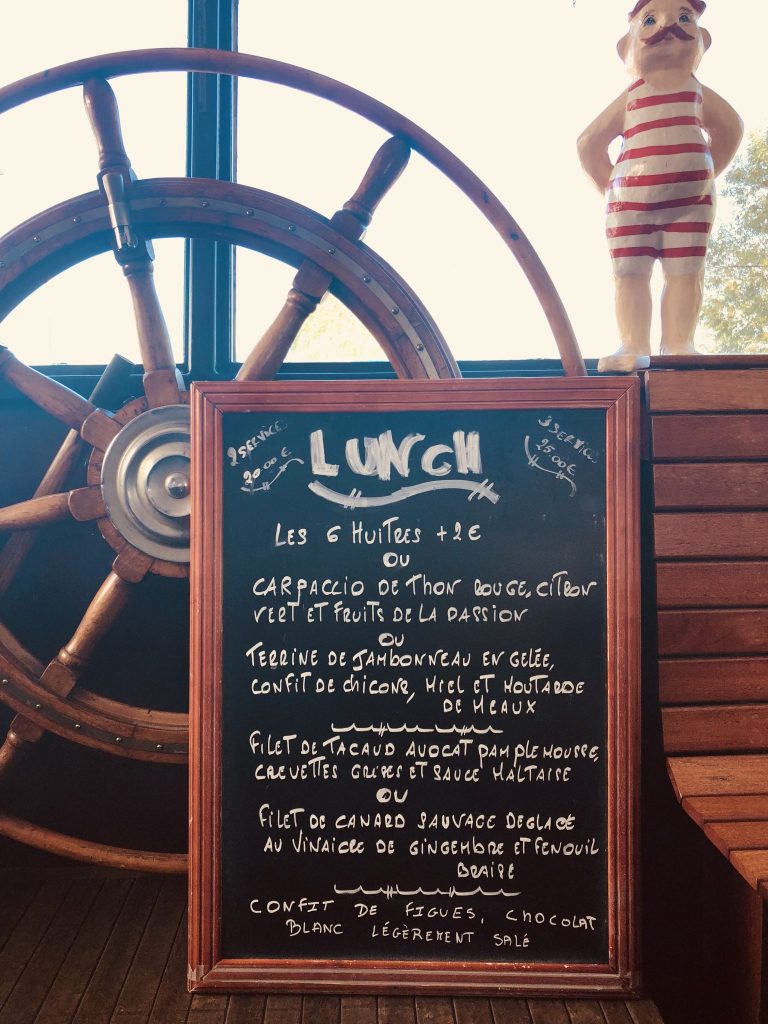 2 SERVICES
20.00 €
LUNCH
3 SERVICES
25.00 €
LES 6 HUITRES +2€
OU
CARPACCIO DE THON ROUGE, CITRON
VERT ET FRUITS DE LA PASSION
OU
TERRINE DE JAMBONNEAU EN GELÉE,
CONFIT DE CHICONS, MIEL ET MOUTARDE
DE MEAUX
FILET DE TACAUD AVOCAT PAMPLEMOUSSE,
CREVETTES GRISES ET SAUCE MALTAISE
OU
FILET DE CANARD SAUVAGE DEGLACE
AU VINAIGRE DE GINGEMBRE ET FENOUIL
BRAISE
CONFIT DE FIGUES, CHOCOLAT
BLANC LÉGÈREMENT SALÉ